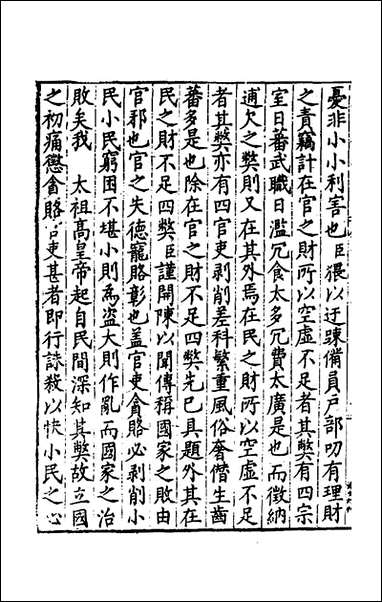 憂非小小利害也臣猥以迂踈備員戸部叨有理財
之責竊計在官之財所以空虚不足者其獘有四宗
室日蕃武職日濫冗食太多冗費太廣是也而徵納
逋欠之獘則又在其外焉在民之財所以空虚不足
者其獘亦有四官吏剥削差科繁重風俗奢僣生齒
蕃多是也除在官之財不足四獘先已具題外其在
民之財不足四獘臣謹開陳以聞傳稱國家之敗由
官邪也官之失徳寵賂彰也盖官吏貪賂必剥削小
民小民窮困不堪小則為盗大則作亂而國家之治
敗矣我　太祖高皇帝起自民間深知其獘故立國
之初痛懲貪賂官吏甚者即行誅殺以快小民之心